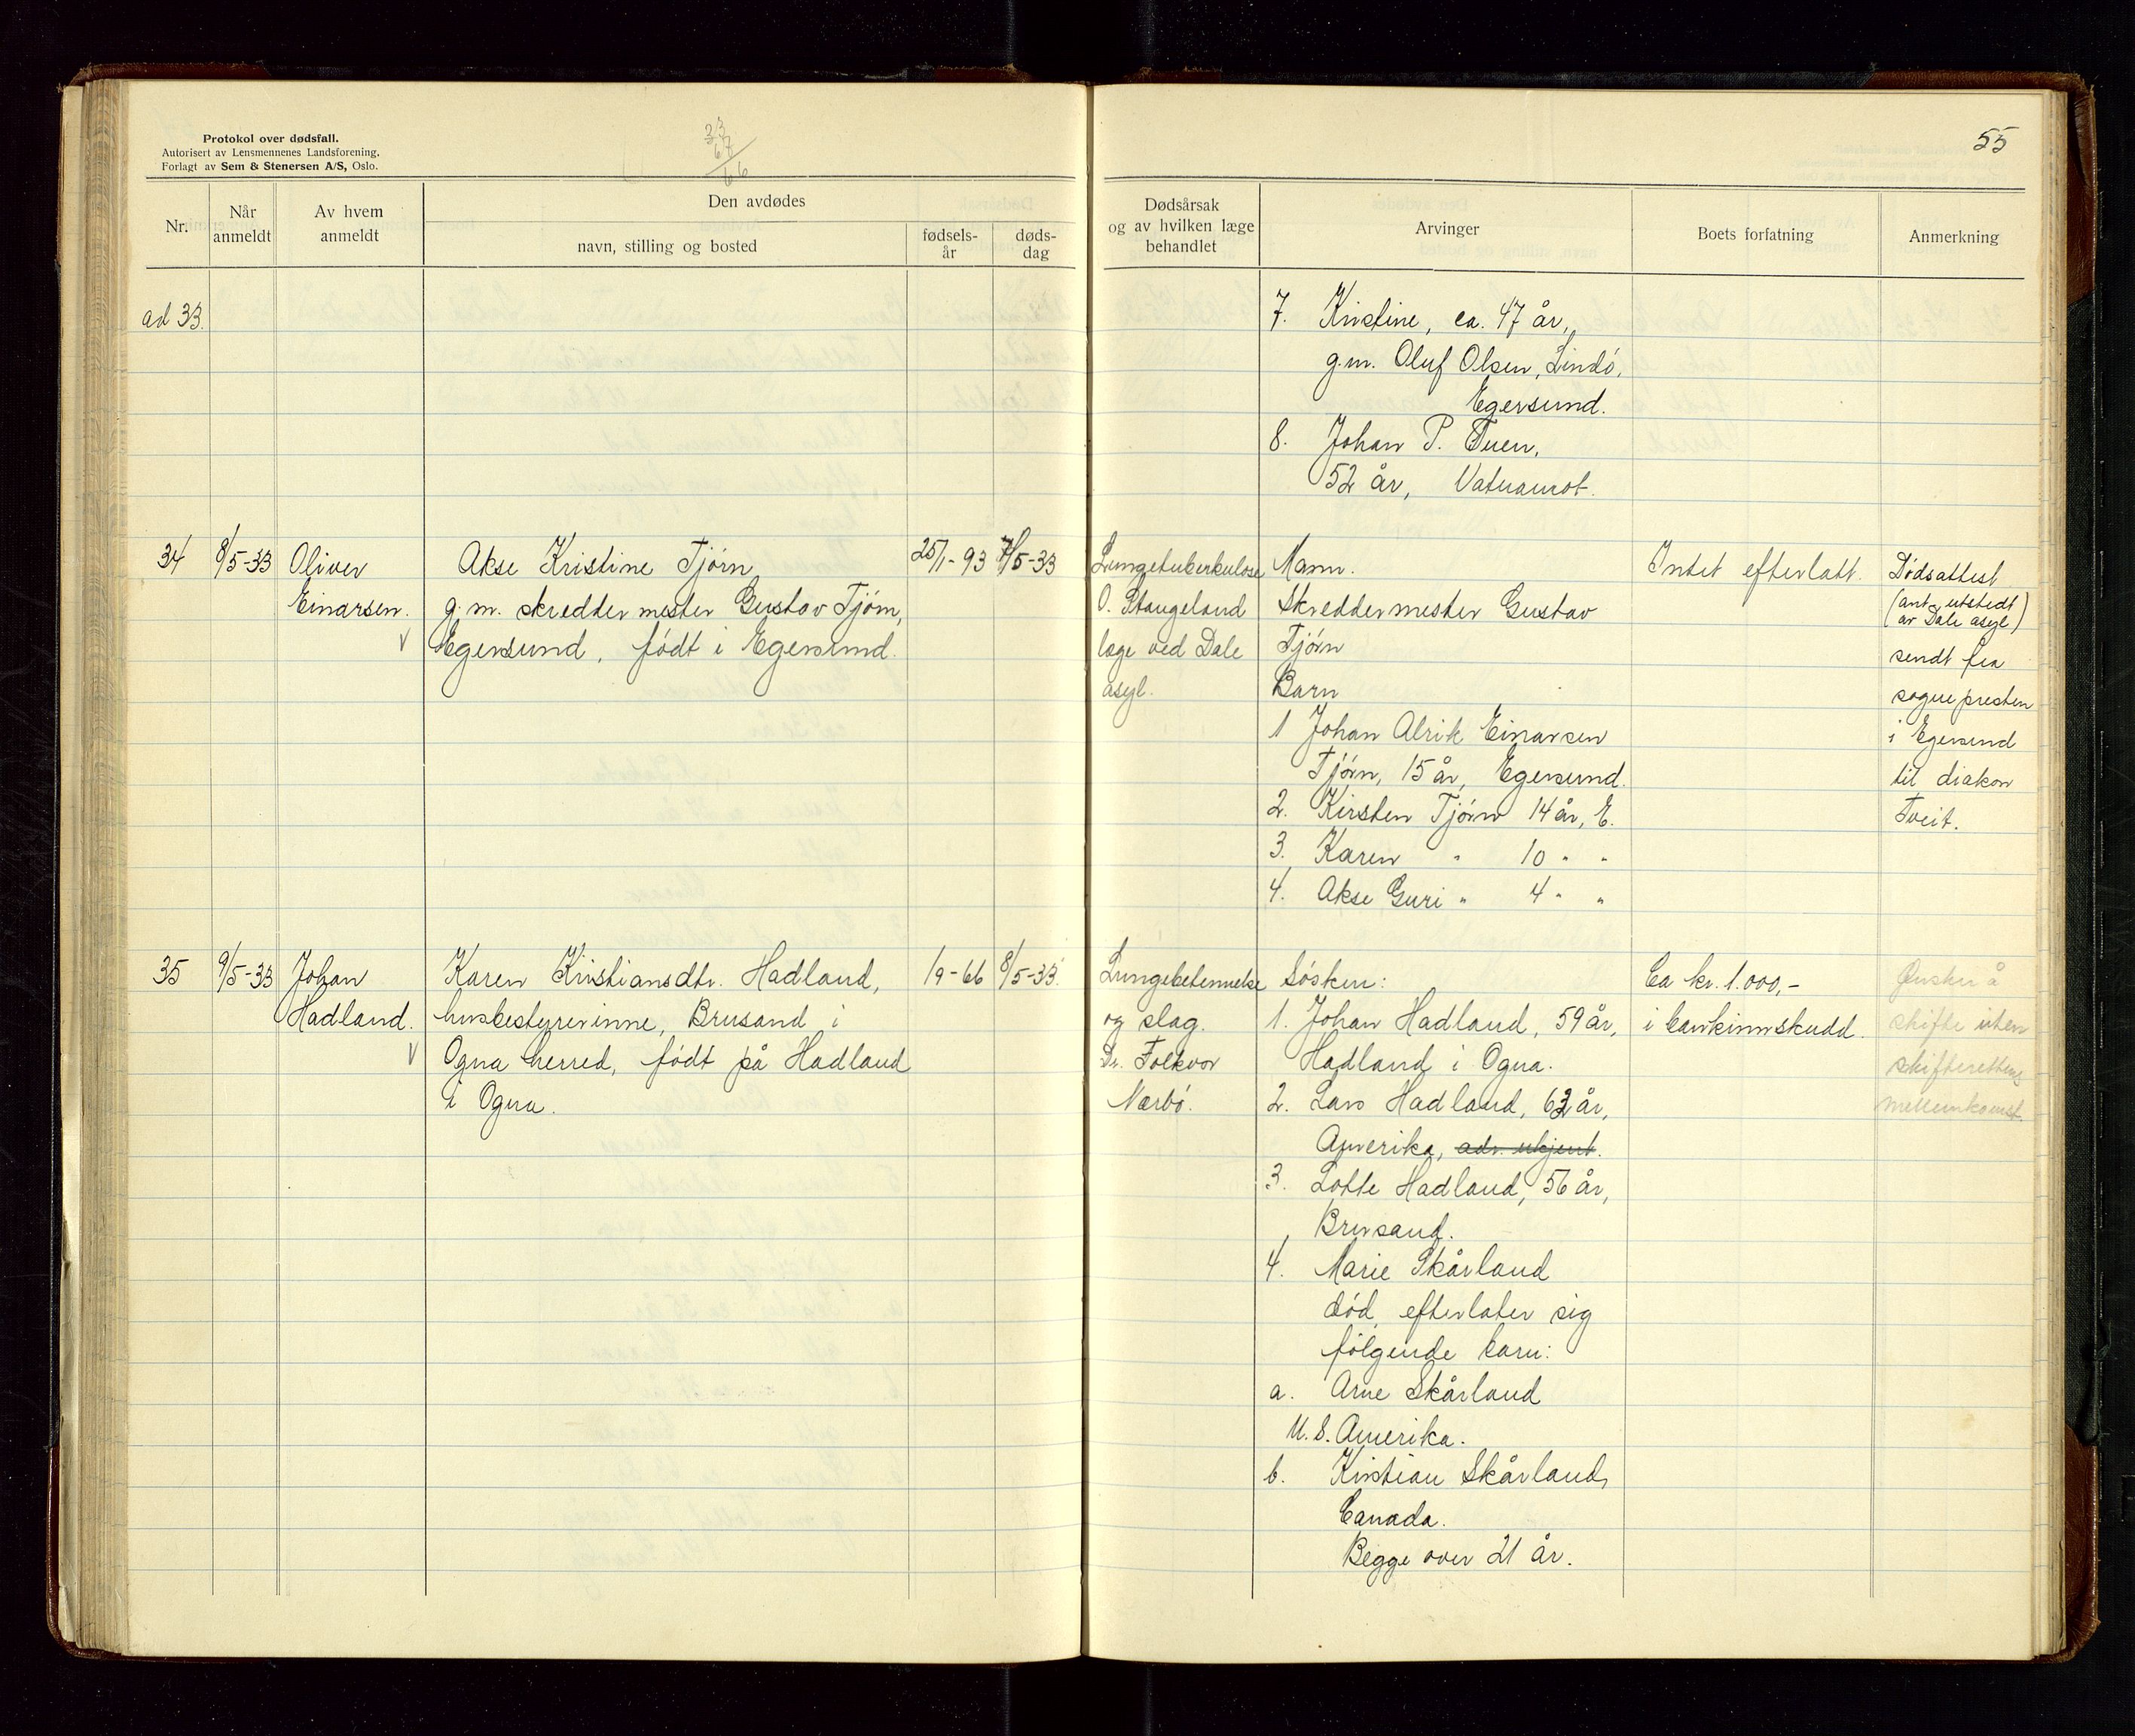 Protokol over dødsfall.
Autorisert av Lensmennenes Landsforening.
Forlagt av Sem & Stenersen A/S, Oslo.
33
67
66
55
Nr.
Når anmeldt
Av hvem anmeldt
Den avdødes
navn, stilling og bosted
fødsels-år
døds-dag
Dødsårsak
og av hvilken læge
behandlet
Arvinger
Boets forfatning
Anmerkning
ad 33.
7. Kristine, ca. 47 år,
g.m. Oluf Olsen, Lindö,
Egersund.
8. Johan P. Tuen,
52 år, Vatnamot.
34
8/5-33
Oliver
Einarsen.
V
Akse Kristine Tjörn
g.m. skreddermester Gustav Tjörn,
Egersund, födt i Egersund.
25/1-93
7/5-33
Lungetuberkulose
O. Stangeland
læge ved Dale
asyl.
Mann.
Skreddermester Gustav
Tjörn
Barn
1 Johan Alrik Einarsen
Tjörn, 15 år, Egersund.
2. Kirsten Tjörn 14 år, E.
3. Karen " 10 " "
4. Akse Guri " 4 " "
Intet efterlatt.
Dödsattest
(ant. utstedt
av Dale asyl)
sendt fra
sognepresten
i Egersund
til diakon
Tveit.
35
9/5-33
Johan
Hadland.
V
Karen Kristiansdtr. Hadland,
husbestyrerinne, Brusand i
Ogna herred, födt på Hadland
i Ogna.
1/9-66
8/5-33.
Lungebetennelse
og slag.
Dr. Folkvor
Nærbö.
Sösken:
1. Johan Hadland, 59 år,
Hadland i Ogna.
2. Lars Hadland, 62 år,
Amerika, adr. ukjent.
3. Lotte Hadland, 56 år,
Brusand.
4. Marie Skårland
död, efterlater sig
fölgende barn:
a. Arne Skårland
U.S. Amerika.
b. Kristian Skårland,
Canada.
Begge over 21 år.
Ca kr. 1.000,-
i bankinnskudd.
Ønsker å
skifte uten
skifterettens
mellemkomst.